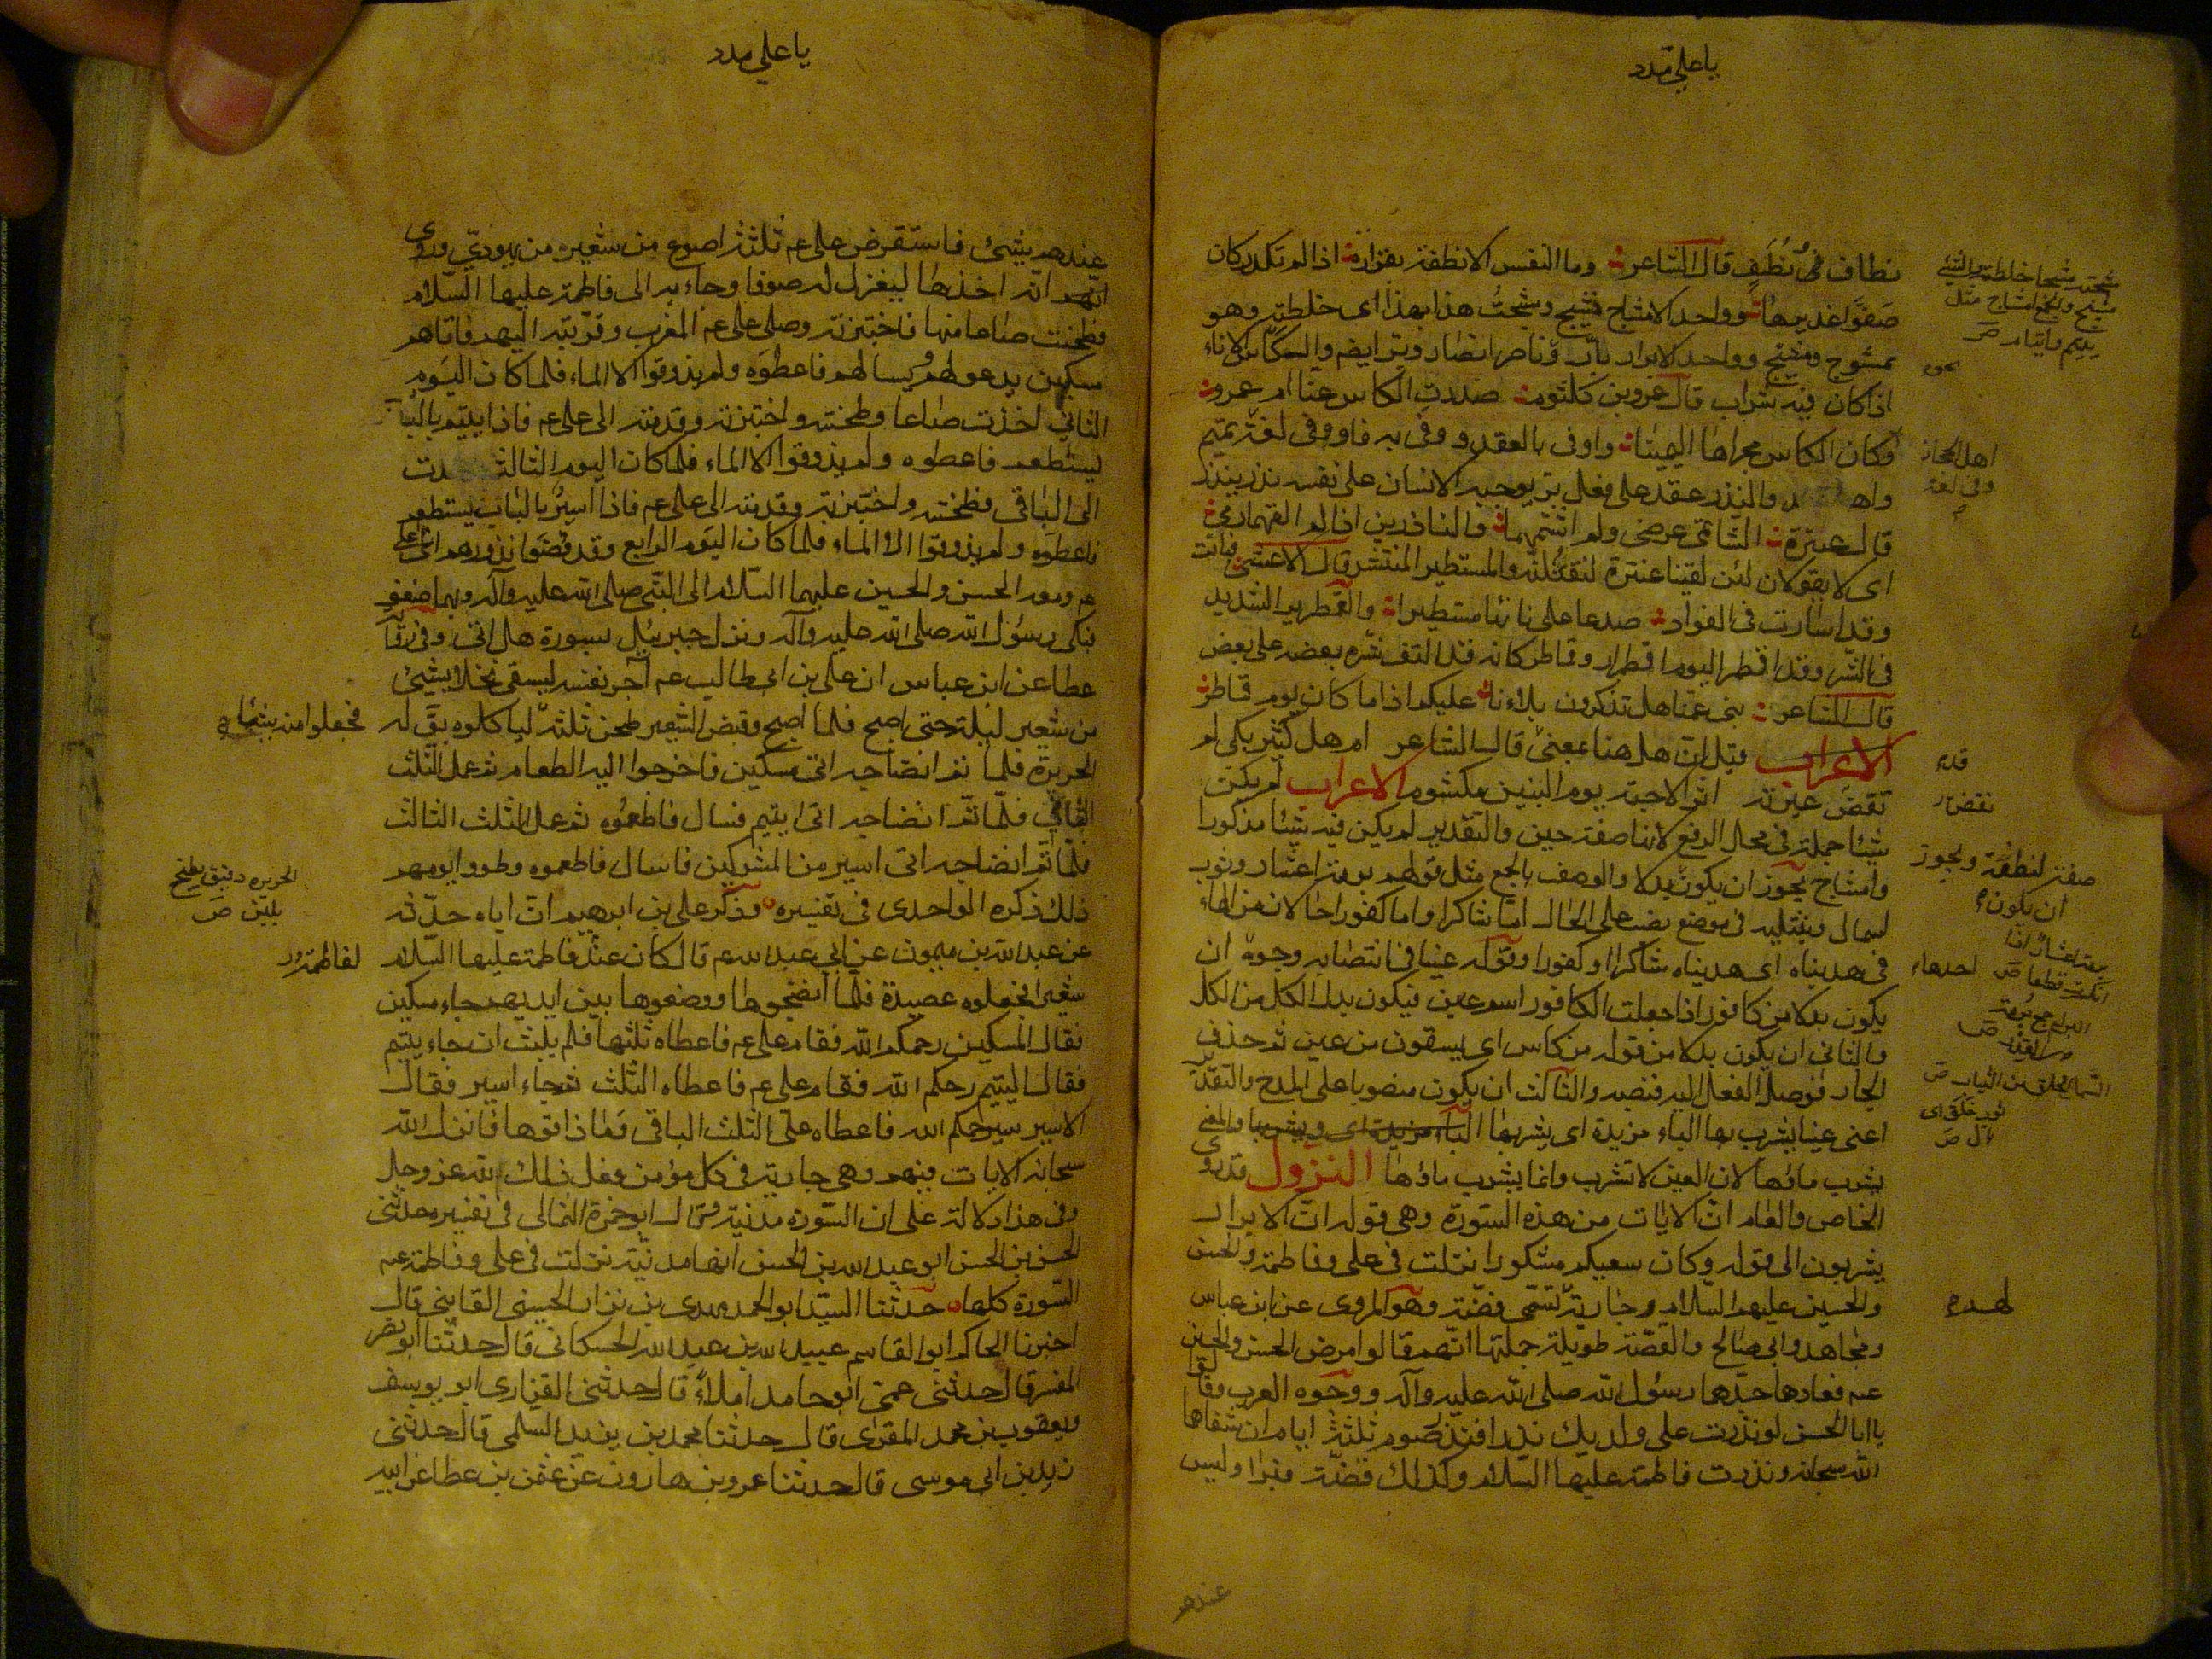 ياعلي مدد
نطاف في نُطَفٍ قال الشاعر وما النفس الا نطفة بقرارة اذا لم تكدر كان
صَفوًا غديرها وواحد الامشاج مشيج ومشجتُ هذا بهذا اى خلطته وهو
ممشوج ومشيج وواحد الابرار بارّ وناصر انصار وبرّ ايضم والكاس الاناء
اذا كان فيه شراب قال عمرو بن كلثوم صددتِ الكاس عنا ام عمرو
وكان الكاس مجراها اليمينا واوفى بالعقد ووفى به فاوفى لغة تميم
والنذر عقد على فعل بر يوجبه الانسان على نفسه نذر ينذر
قال عنترة الشاتمى عرضى ولم اشتمهما والناذرين اذا لم القهما دمى
اى لا يقولان لئن لقينا عنترة لنقتُلنّه والمستطير المنتشر قال الاعشى فبانت
وقد اسارت فى الفواد صدعا على نايها مستطيرا والقمطرير الشديد
فى الشر وقد اقمطر اليوم اقمطرار وقاطر كانه قد التف شره بعضه على بعض
قال الشاعر بنى عمنا هل تذكرون بلاءنا عليكم اذا ما كان يوم قماطر
الاعراب قيل ان هل هنا بمعنى قال الشاعر ام هل كثير بكى لم
تقض عبرته اثر الاحبة يوم البين مشكوم الاعراب لم يكن
شيئا جملة فى محل الرفع لانها صفة حين والتقدير لم يكن فيه شيئا مذكورا
وامشاج يجوز ان يكون بدلا والوصف بالجمع مثل قولهم برمة اعشار وثوب
اسمال ونبتليه فى موضع نصب على الحال اما شاكرا واما كفورا حالان من الهاء
فى هديناه اى هديناه شاكرا او كفورا وقوله عينا فى انتصابه وجوه ان
يكون بدلا من كافورا اذا جعلت الكافور اسم عين فيكون بدل الكل من الكل
والثانى ان يكون بدلا من قوله من كاس اى يسقون من عين ثم حذف
الجار فوصل الفعل اليه فنصبه والثالث ان يكون منصوبا على المدح والتقدير
اعنى عينا يشرب بها الباء مزيدة اى يشربها الباء مزيدة اى ويشربها والمعنى
يشرب ماؤها لان العين لا تشرب وانما يشرب ماؤها النزول قد روى
الخاص والعام انّ الايات من هذه السّورة وهى قوله انّ الابرار
يشربون الى قوله وكان سعيكم مشكورا نزلت فى على وفاطمة والحسن
والحسين عليهم السّلام وجارية تسمّى فضّة وهو المروى عن ابن عباس
ومجاهد وابى صالح والقصّة طويلة جملتها انّهم قالوا مرض الحسن والحسين
عم فعادهما جدّهما رسول الله صلى الله عليه وآله ووجوه العرب وقالوا
يا ابا الحسن لو نذرت على ولديك نذرا فنذر صوم ثلثة ايام ان شفاهما
الله سبحانه ونذرت فاطمة عليها السّلام وكذلك فضّة فبرا وليس
عندهم
مشجته مشجا خلطته والشئ
مشيج والجمع امشاج مثل
يتيم وايتام ص
اهل الحجاز
وفى لغة
قد
نقض
صفة لنطفة ويجوز
ان يكون
برمة اعشار اذا
انكسرت قطعا ص
احدها
البرام جمع برمة
القدر ص
السمل الخلق من الثياب ص
ثوب خلق اى
بال ص
لهم
ياعلي مدد
عندهم بشئ فاستقرض على عم ثلثة اصوع من شعير من يهوديّ وروى
انّه اخذها ليغزل له صوفا وجاء به الى فاطمة عليها السّلام
فطحنت صاعا منها فاختبزته وصلى على عم المغرب وقرّبته اليهم فاتاهم
مسكين يدعو لهم ويسالهم فاعطوه ولم يذوقوا الا الماء فلما كان اليوم
الثانى اخذت صاعا وطحنته واختبزته وقدمته الى على عم فاذا يتيم بالباب
يستطعم فاعطوه ولم يذوقوا الا الماء فلما كان اليوم الثالث عمدت
الى الباقى فطحنته واختبزته وقدمته الى على عم فاذا اسير بالباب يستطعم
فاعطوه ولم يذوقوا الا الماء فلما كان اليوم الرابع وقد قضوا نذورهم اتى على
عم ومعه الحسن والحسين عليهما السّلام الى النبى صلى الله عليه وآله وبهما ضعف
فبكى رسول الله صلى الله عليه وآله ونزل جبرئيل بسورة هل اتى وفى رواية
عطا عن ابن عباس ان على بن ابى طالب عم آجر نفسه ليسقى نخلا بشئ
من شعير ليلة حتى اصبح فلما اصبح وقبض الشعير طحن ثلثه لياكلوه يقال له
الحريرة فلما تم انضاجه اتى مسكين فاخرجوا اليه الطعام ثم عمل الثلث
الثانى فلمّا تمّ انضاجه اتى يتيم فسال فاطعموه ثم عمل الثلث الثالث
فلمّا تمّ انضاجه اتى اسير من المشركين فاسال فاطعموه وطووا يومهم
ذلك ذكره الواحدى فى تفسيره وذكر على بن ابرهيم انّ اباه حدّثه
عن عبد الله بن ميمون عن ابى عبد الله عم قال كان عند فاطمة عليها السّلام
شعير فجعلوه عصيدة فلمّا انضجوها ووضعوها بين ايديهم جاء مسكين
فقال المسكين رحمكم الله فقام على عم فاعطاه ثلثها فلم يلبث ان جاء يتيم
فقال اليتيم رحمكم الله فقام على عم فاعطاه الثلث ثم جاء اسير فقال
الاسير يرحمكم الله فاعطاه على الثلث الباقى وما ذاقوها فانزل الله
سبحانه الايات فيهم وهى جارية فى كل مؤمن فعل ذلك لله عز وجل
وفى هذا دلالة على ان السّورة مدنية قال ابو حمزة الثمالى فى تفسيره حدثنى
الحسن بن الحسن ابو عبد الله بن الحسن انها مدنيّة نزلت فى على وفاطمة عم
السّورة كلها حدثنا السيّد ابو الحمد مهدى بن نزار الحسينى القاينى قال
اخبرنا الحاكم ابو القاسم عبيد الله بن عبد الله الحسكانى قال حدثنا ابو نصر
المفسر قال حدثنى عمى ابو حامد املاءً قال حدثنى الفزارى ابو يوسف
ويعقوب بن محمد المقرى قال حدثنا محمد بن يزيد السلمى قال حدثنى
زيد بن ابى موسى قال حدثنا عمرو بن هارون عن عثمن بن عطا عن ابيه
فجعلوا منه شيئا
الحريره دقيق يطبخ
بلبن ص
لفاطمة